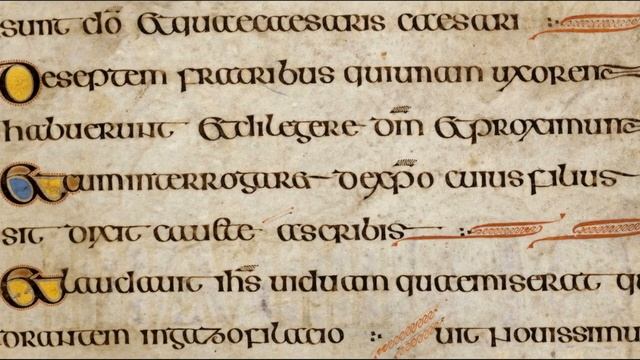 sunt dō Et quae caesaris caesari
De septem fratribus qui unam uxorem
habuerunt Et diligere dm̄ Et proximum
Et cum interrogaret de xp̄o cuius filius
sit dixit caute a scribis
Et laudauit ih̄s uiduam quae miserat qu
orantem in gazofilacio uit nouissimu